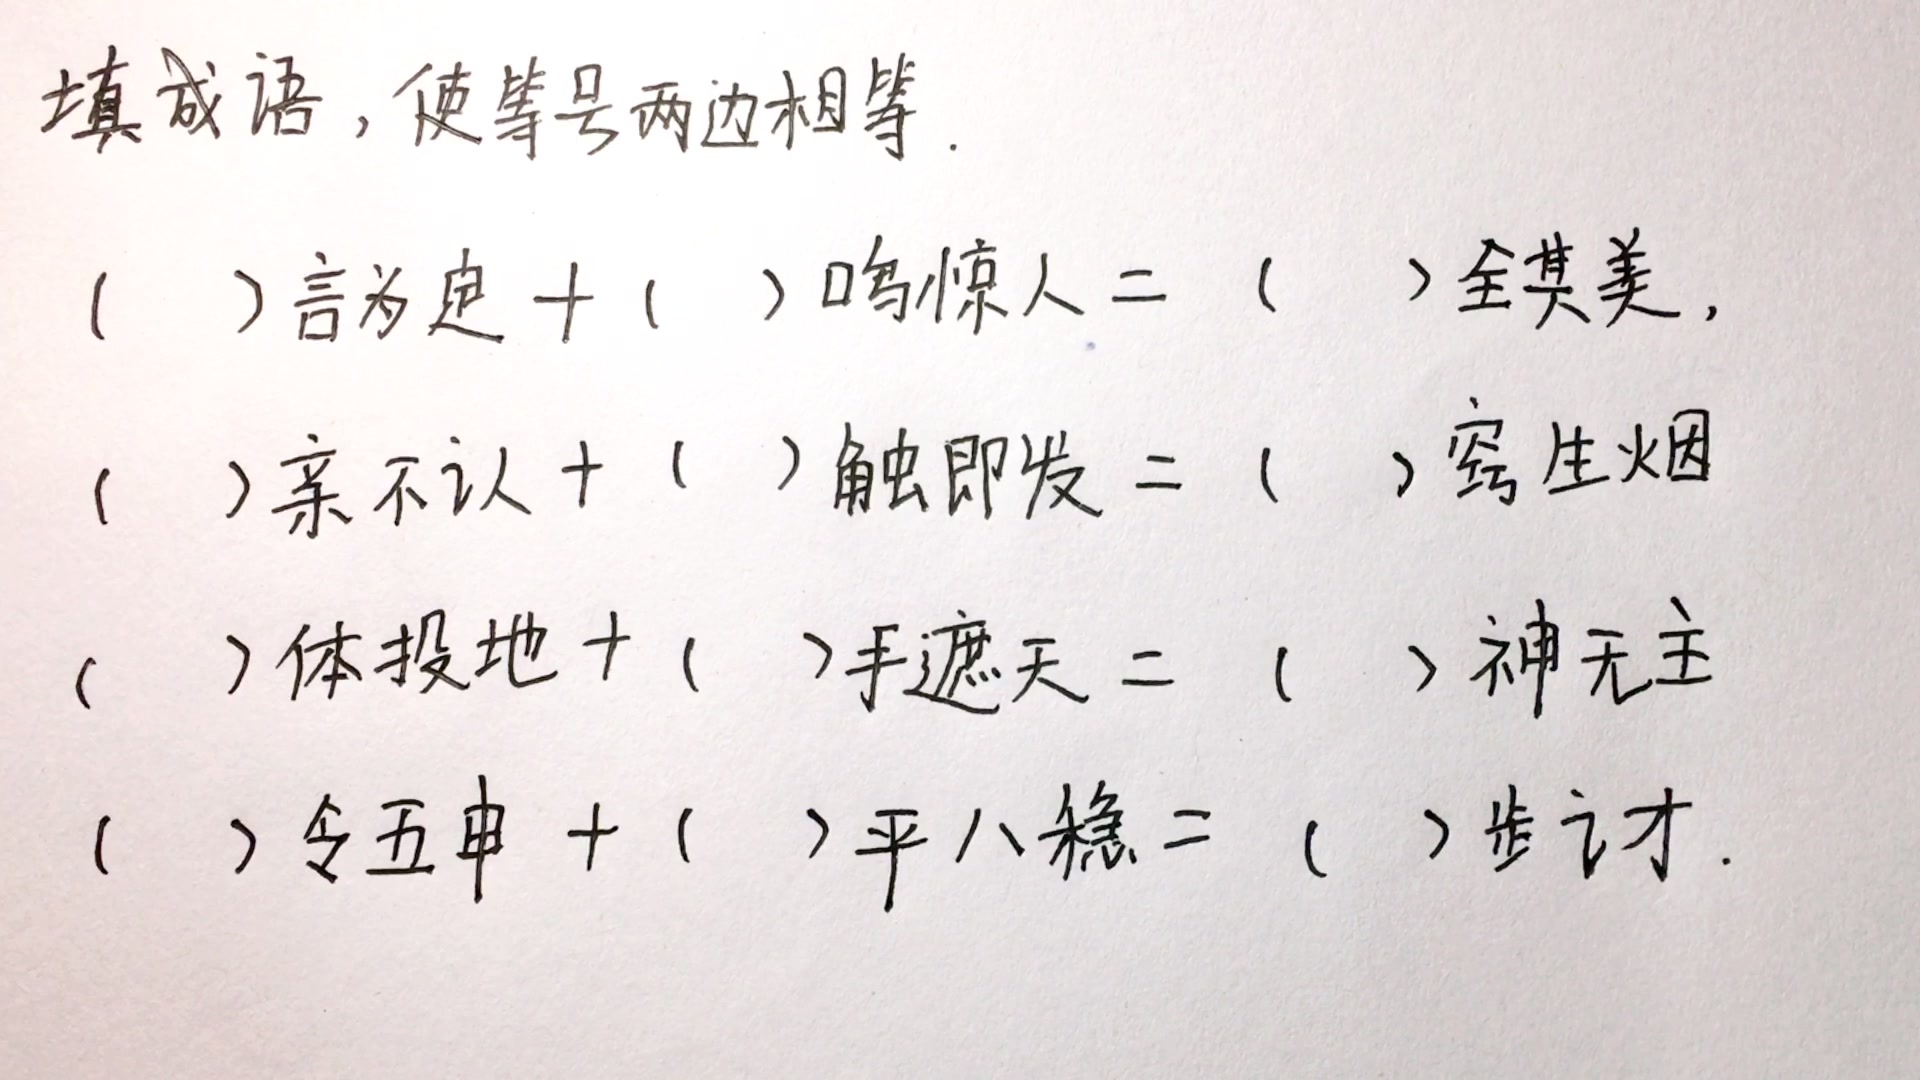 填成语，使等号两边相等.
(  )言为定+(  )鸣惊人=(  )全其美,
(  )亲不认+(  )触即发=(  )窍生烟
(  )体投地+(  )手遮天=(  )神无主
(  )令五申+(  )平八稳=(  )步讠才.